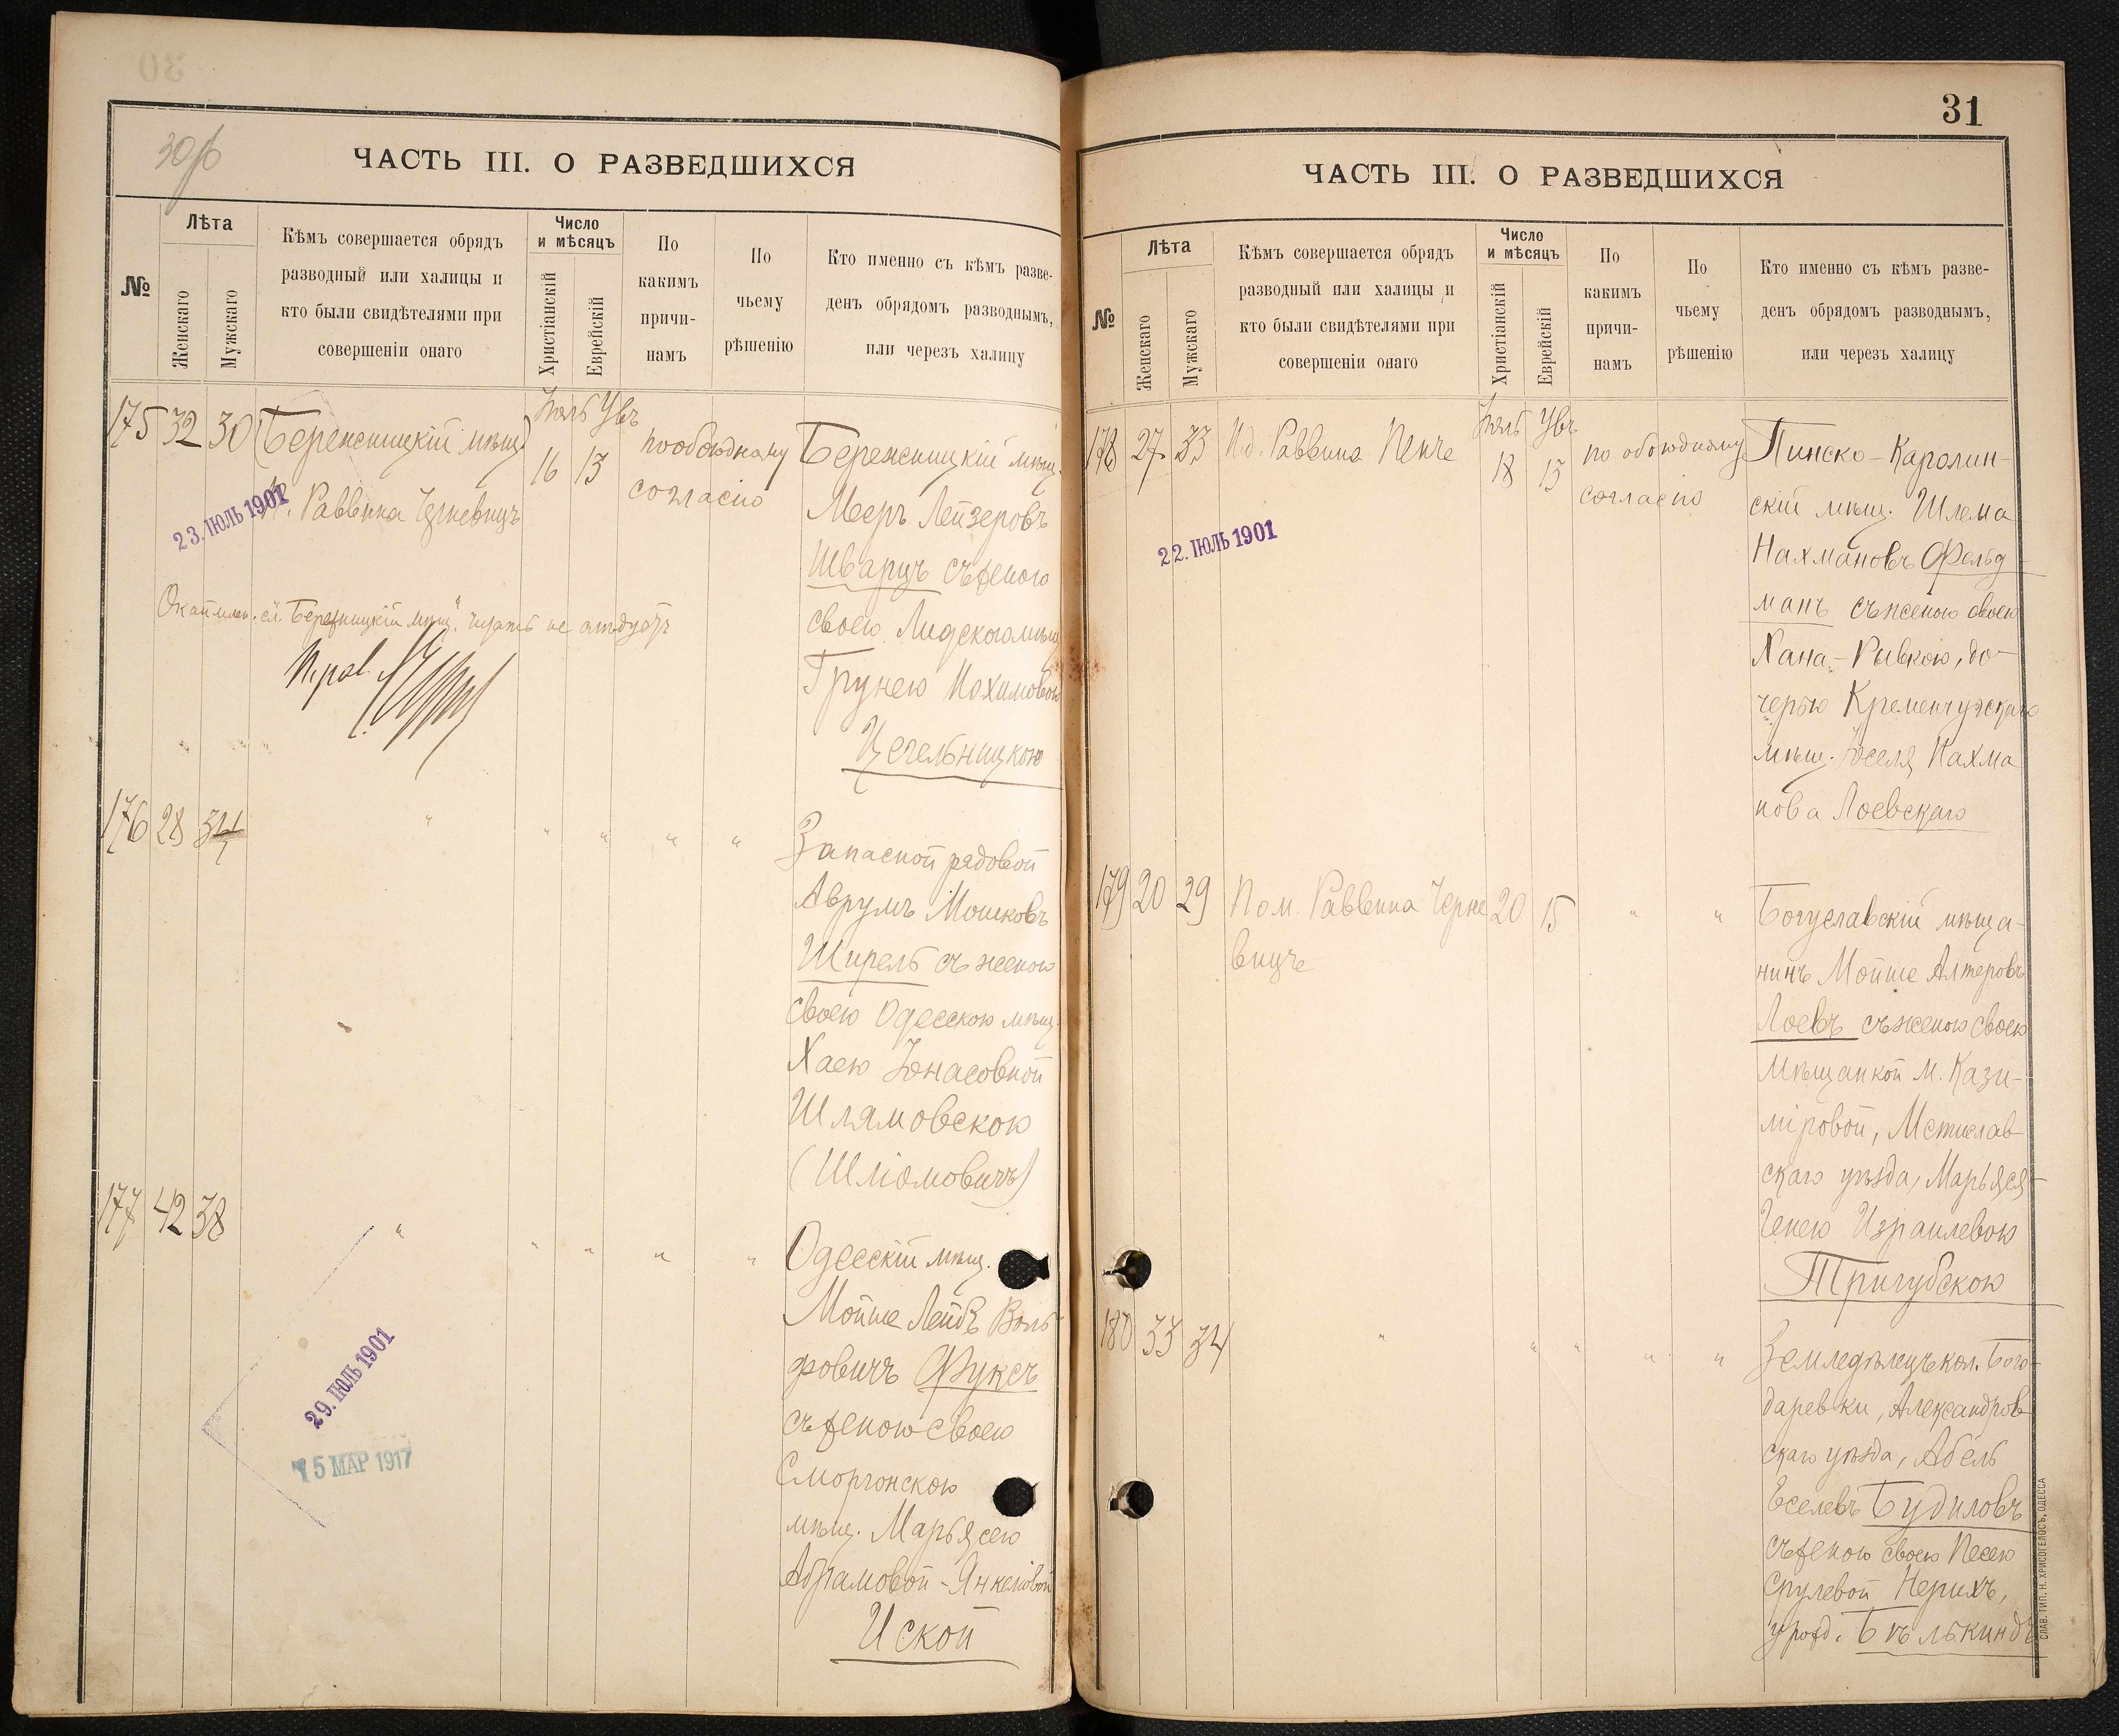 30об
ЧАСТЬ III. О РАЗВЕДШИХСЯ
№
Лѣта
Женскаго
Мужскаго
Кѣмъ совершается обрядъ
разводный или халицы и
кто были свидѣтелями при
совершеніи онаго
Число
и мѣсяцъ
Христіанскій
Еврейскій
По
какимъ
причи-
намъ
По
чьему
рѣшенію
Кто именно съ кѣмъ разве-
денъ обрядомъ разводнымъ,
или черезъ халицу
175 32 30
Раввина
Іюль
16 13
по обоюдному
согласію
23. ІЮЛЬ 1901
Бережницкій мѣщ.
Мееръ Лейзеровъ
Шварцъ съ женою
своею Лидскою мѣщ.
Грунею Нохимовою
Цегельницкою
176 28 34
" " " " "
Запасной рядовой
Аврумъ Мошковъ
Ширель съ женою
своею Одесскою мѣщ.
Хаею Іонасовной
Шлямовскою
(Шліомовичъ)
177 42 38
" " " " "
29. ІЮЛЬ 1901
15 МАР 1917
Одесскій мѣщ.
Мойше Лейбъ Воль-
фовичъ Фуксъ
съ женою своею
Сморгонскою
мѣщ. Марьясею
Абрамовой-Янкелевой
Иской
31
ЧАСТЬ III. О РАЗВЕДШИХСЯ
№
Лѣта
Женскаго
Мужскаго
Кѣмъ совершается обрядъ
разводный или халицы и
кто были свидѣтелями при
совершеніи онаго
Число
и мѣсяцъ
Христіанскій
Еврейскій
По
какимъ
причи-
намъ
По
чьему
рѣшенію
Кто именно съ кѣмъ разве-
денъ обрядомъ разводнымъ,
или черезъ халицу
178 27 33
Раввина Пенче
Іюль
18 13
по обоюдному
согласію
22. ІЮЛЬ 1901
Пинско-Каролин-
скій мѣщ. Шлема
Нахмановъ Фельд-
манъ съ женою своею
Хана-Ривкою, до-
черью Кременчугскаго
мѣщ. Іоселя Нахма
нова Лоевскаго
179 20 29
Пом. Раввина Черне
вицче
20 15
" "
Богуславскій мѣща-
нинъ Мойше Алтеровъ
Лоевъ съ женою своею
мѣщанкой м. Кази-
міровой, Мстислав-
скаго уѣзда, Марьяся-
Генею Израилевою
Тригубскою
180 33 34
" " " " "
Земледѣлецъ кол. Бого-
даревки, Александров-
скаго уѣзда, Абель
Еселевъ Будиловъ
съ женою своею Песею
Срулевой Нерихъ,
урожд. Бѣлькиндъ
СЛАВ. ТИП. Н. ХРИСОГЕЛОСЪ, ОДЕССА